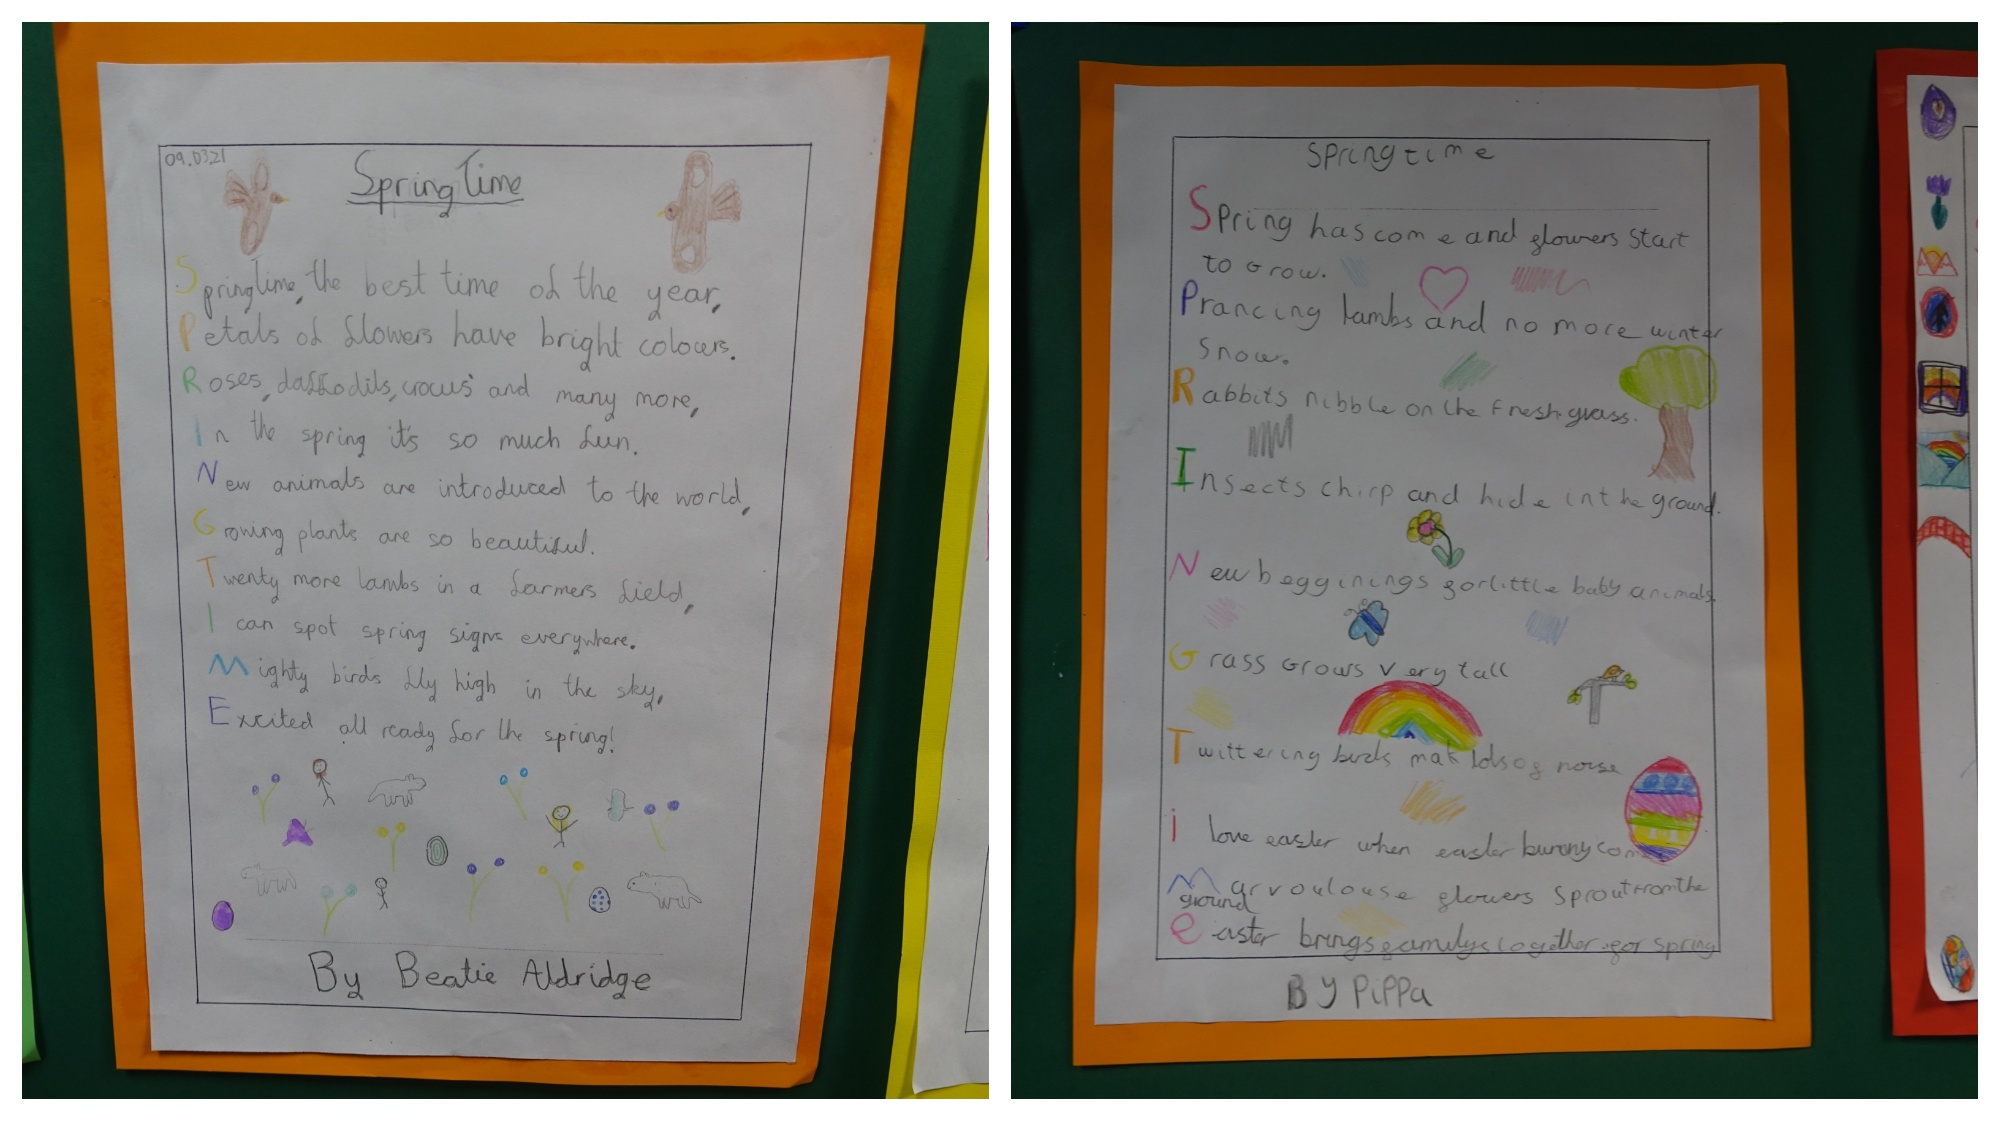 09.03.21
Spring Time
Springtime, the best time of the year,
Petals of flowers have bright colours.
Roses, daffodils, crocus' and many more,
In the spring it's so much fun.
New animals are introduced to the world,
Growing plants are so beautiful.
Twenty more lambs in a farmers field,
I can spot spring signs everywhere.
Mighty birds fly high in the sky,
Excited all ready for the spring!
By Beatie Aldridge
Springtime
Spring has come and flowers start
to Grow.
Prancing lambs and no more winter
Snow.
Rabbits nibble on the fresh grass.
Insects chirp and hide in the ground.
New begginings for little baby animals
Grass Grows very tall
Twittering birds mak lots of noise
i love easter when easter bunny com
Marvoulouse flowers Sprout from the
ground
easter brings familys together for spring
BY PiPPa